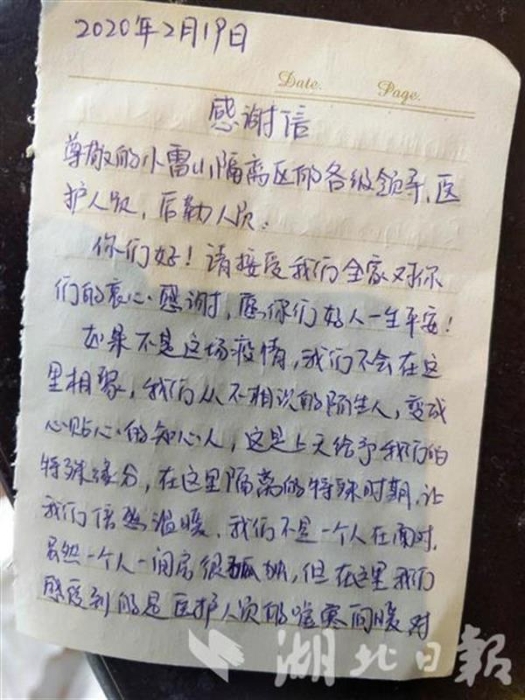 2020年2月19日
Date. Page.
感谢信
尊敬的小雷山隔离区的各级领导、医
护人员，后勤人员：
你们好！请接受我们全家对你
们的衷心感谢，愿你们好人一生平安！
如果不是这场疫情，我们不会在这
里相聚，我们从不相识的陌生人，变成
心贴心的知心人，这是上天给予我们的
特殊缘分，在这里隔离的特殊时期，让
我们倍感温暖，我们不是一个人在面对，
虽然一个人一间房很孤独，但在这里我们
感受到的是医护人员的嘘寒问暖对
湖北日报